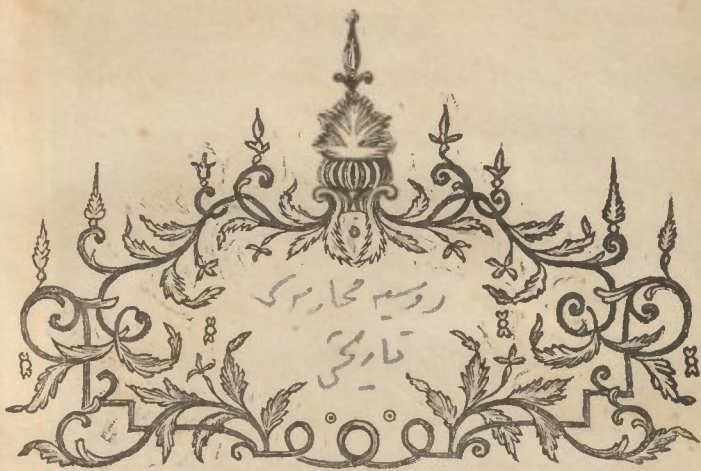 روسیه محاربه‌سی
تاریخی